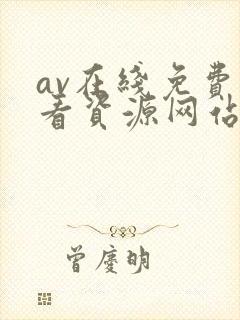 av在线免费
看资源网站
曾庆明